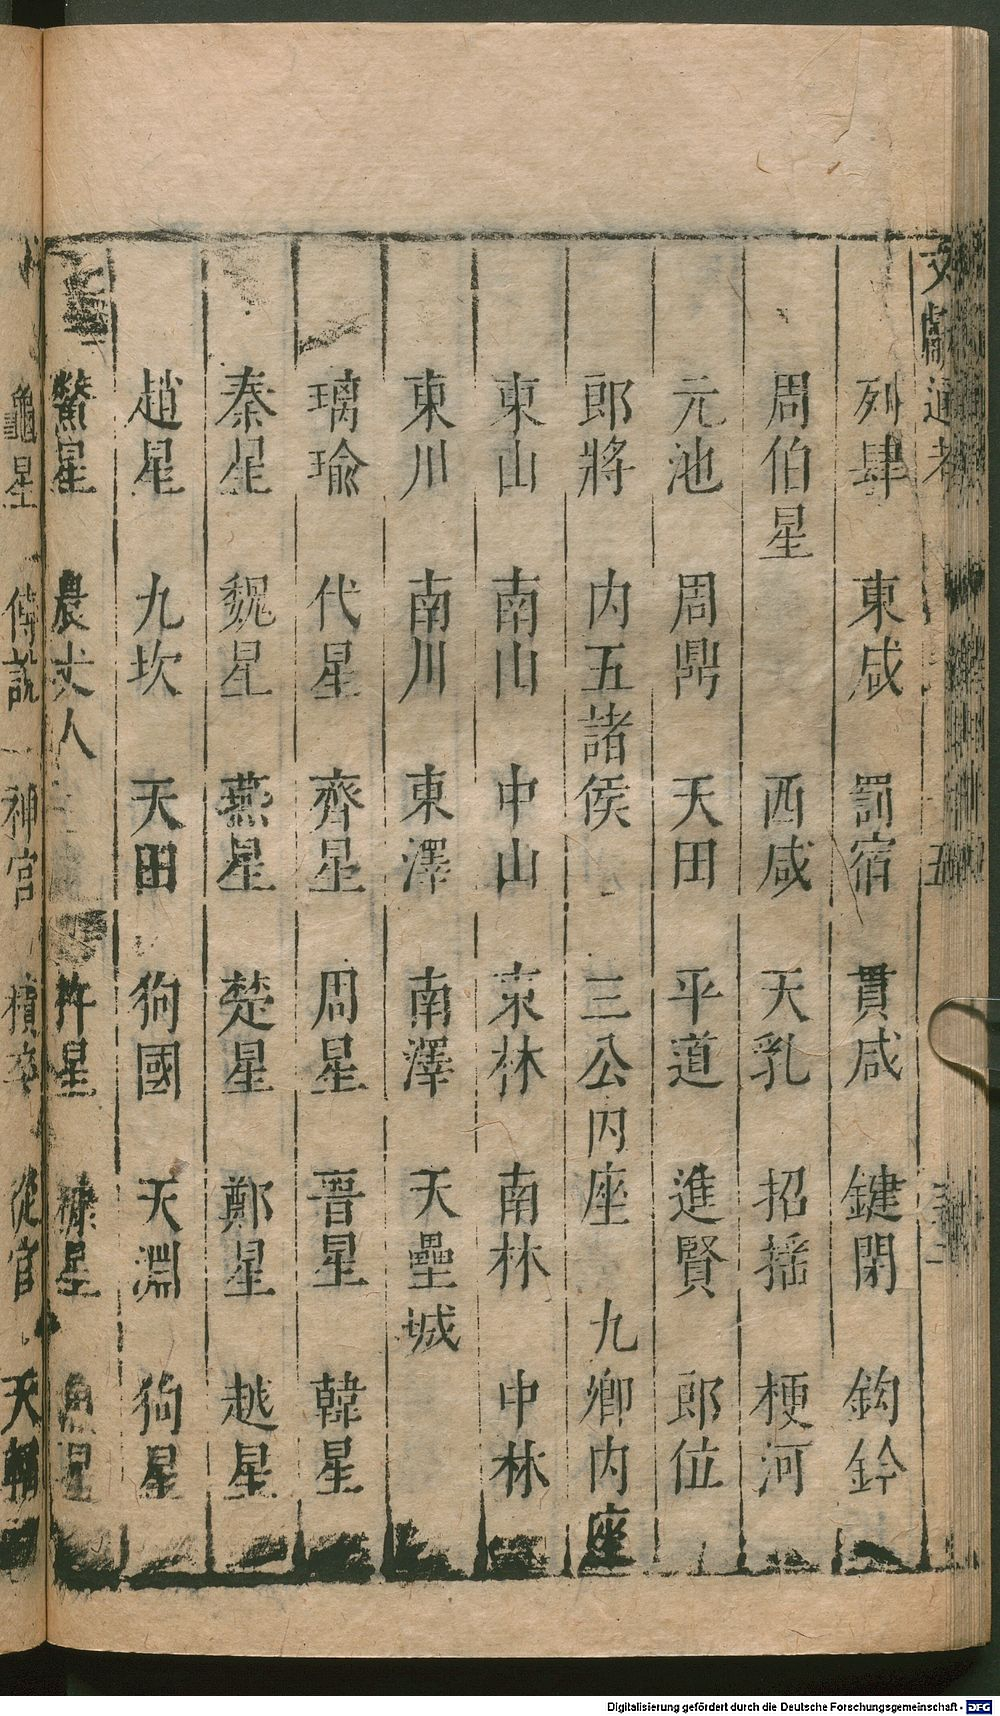 文獻通考 五
列肆 東咸 罰宿 貫咸 鍵閉 鈎鈐
周伯星 西咸 天乳 招搖 梗河
元池 周鼎 天田 平道 進賢 郎位
郎將 内五諸侯 三公内座 九卿内座
東山 南山 中山 東林 南林 中林
東川 南川 東澤 南澤 天壘城
璃瑜 代星 齊星 周星 晋星 韓星
秦星 魏星 燕星 楚星 鄭星 越星
趙星 九坎 天田 狗國 天淵 狗星
鱉星 農丈人 杵星 糠星 魚星
龜星 傅說 神宫 積卒 從官 天輻
Digitalisierung gefördert durch die Deutsche Forschungsgemeinschaft - DFG